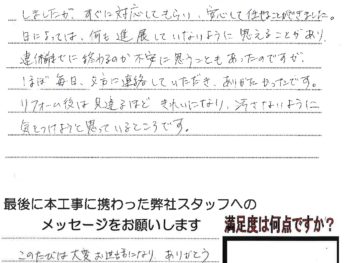 しましたが、すぐに対応してもらい、安心して任せることができました。
日によっては、何も進展していないように思えることがあり、
連休前までに終わるのか不安に思うこともあったのですが、
ほぼ毎日、夕方に連絡していただき、ありがたかったです。
リフォーム後は見違えるほどきれいになり、汚さないように
気をつけようと思っているところです。
最後に本工事に携わった弊社スタッフへの
メッセージをお願いします
満足度は何点ですか?
このたびは大変お世話になり、ありがとう